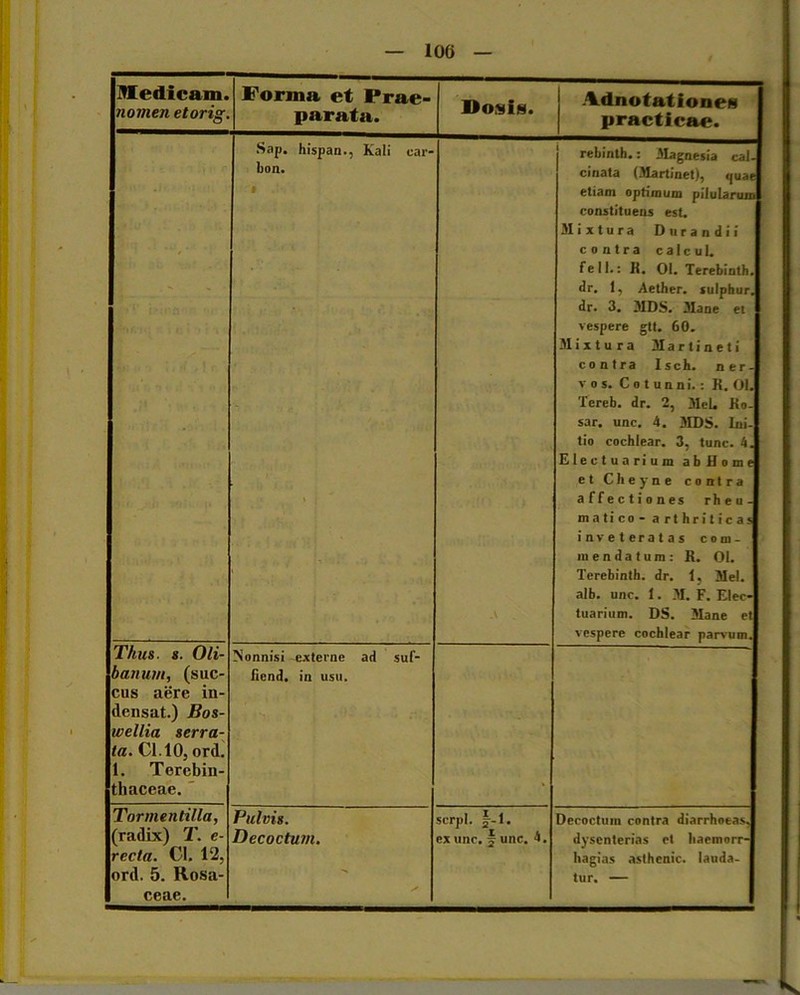 — 106 —
Medicam.
nomen et orig.
Forma et Prae-
parata.
Dosis.
Adnotationes
practicae.
Sap. hispan., Kali car-
bon.
rebinth.: Magnesia cal-
cinata (Martinet), quae
etiam optimum pilularum
constituens est.
Mixtura Durandii
contra calcul.
fell.: R. Ol. Terebinth.
dr. 1, Aether. sulphur.
dr. 3. MDS. Mane et
vespere gtt. 60.
Mixtura Martineti
contra Isch. ner-
vos. Cotunni.: R. Ol.
Tereb. dr. 2, Mel. Ro-
sar. unc. 4. MDS. Ini-
tio cochlear. 3, tunc. 4.
Electuarium ab Home
et Cheyne contra
affectiones rheu-
matico-arthriticas
inveteratas com-
mendatum: R. Ol.
Terebinth. dr. 1, Mel.
alb. unc. 1. M. F. Elec-
tuarium. DS. Mane et
vespere cochlear parvum.
Thus. s. Oli-
banum, (suc-
cus aëre in-
densat.) Bos-
wellia serra-
ta. Cl.10, ord.
1. Terebin-
thaceae.
Nonnisi externe ad suf-
fiend. in usu.
Tormentilla,
(radix) T. e-
recta. Cl. 12,
ord. 5. Rosa-
ceae.
Pulvis.
Decoctum.
scrpl. ½-1.
ex unc. ½ unc. 4.
Decoctum contra diarrhoeas,
dysenterias et haemorr-
hagias asthenic. lauda-
tur. —